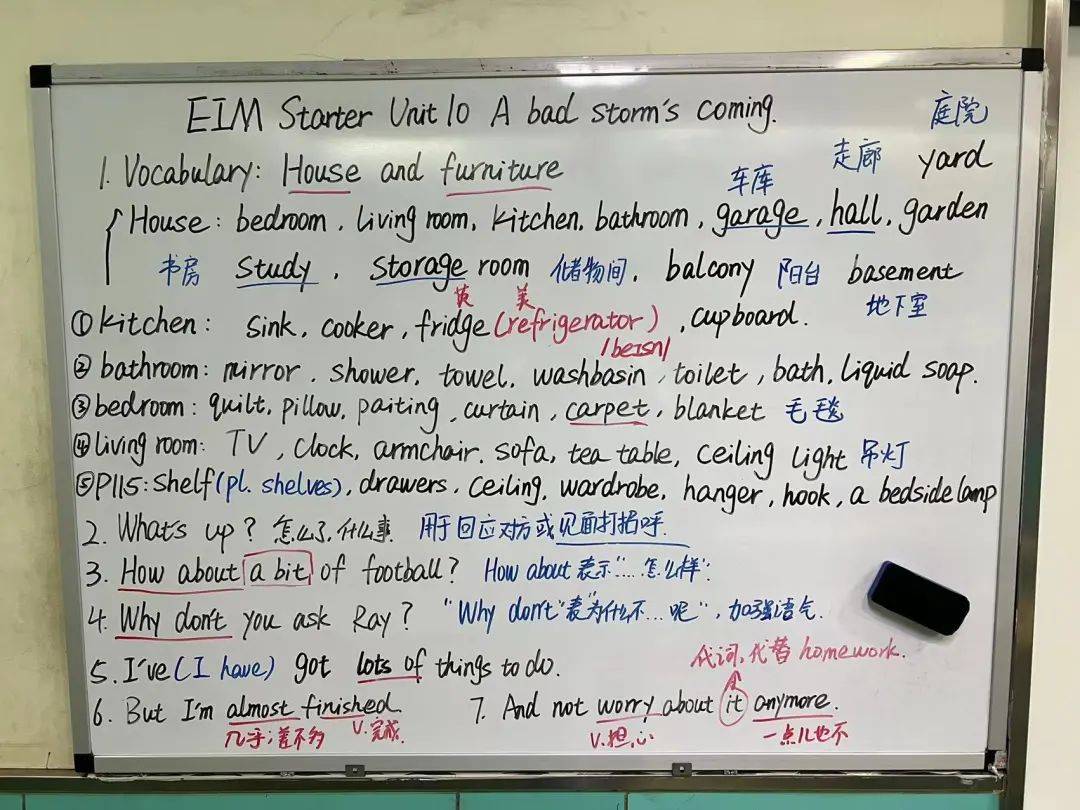 EIM Starter Unit 10 A bad storm's coming.
庭院
1. Vocabulary: House and furniture 车库 走廊 yard
House: bedroom, living room, kitchen, bathroom, garage, hall, garden
书房 study, storage room 储物间, balcony 阳台 basement
英 美 地下室
①kitchen: sink, cooker, fridge (refrigerator), cupboard.
/beɪsn/
②bathroom: mirror, shower, towel, washbasin, toilet, bath, liquid soap.
③bedroom: quilt, pillow, paiting, curtain, carpet, blanket 毛毯
④living room: TV, clock, armchair, sofa, tea table, ceiling light 吊灯
⑤P115: shelf (pl. shelves), drawers, ceiling, wardrobe, hanger, hook, a bedside lamp
2. What's up? 怎么了,什么事 用于回应对方或见面打招呼.
3. How about a bit of football? How about 表示"……怎么样".
4. Why don't you ask Ray? "Why don't"表"为什么不…呢",加强语气.
代词,代替 homework.
5. I've (I have) got lots of things to do.
6. But I'm almost finished. 7. And not worry about it anymore.
几乎;差不多 v.完成. v.担心 一点儿也不